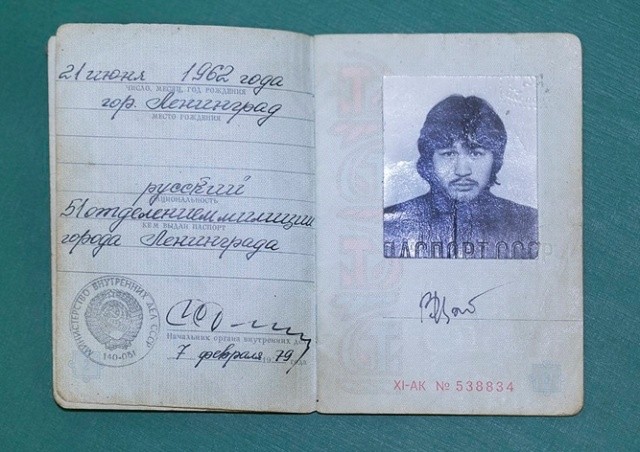 21 июня 1962 года
ЧИСЛО, МЕСЯЦ, ГОД РОЖДЕНИЯ
гор. Ленинград
МЕСТО РОЖДЕНИЯ
русский
НАЦИОНАЛЬНОСТЬ
51 отделением милиции
КЕМ ВЫДАН ПАСПОРТ
города Ленинграда
МИНИСТЕРСТВО ВНУТРЕННИХ ДЕЛ СССР
140-051
Начальник органа внутренних
7 февраля 1979 года
ПАСПОРТ СССР
XI-АК № 538834